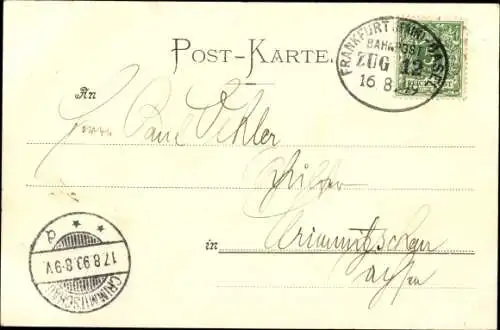 POST-KARTE.
FRANKFURT (MAIN)-BASEL
BAHNPOST
ZUG 12
16 8
An
Herrn Paul
in Crimmitschau
Sachsen
CRIMMITSCHAU
17.8.99.8-9V.
d